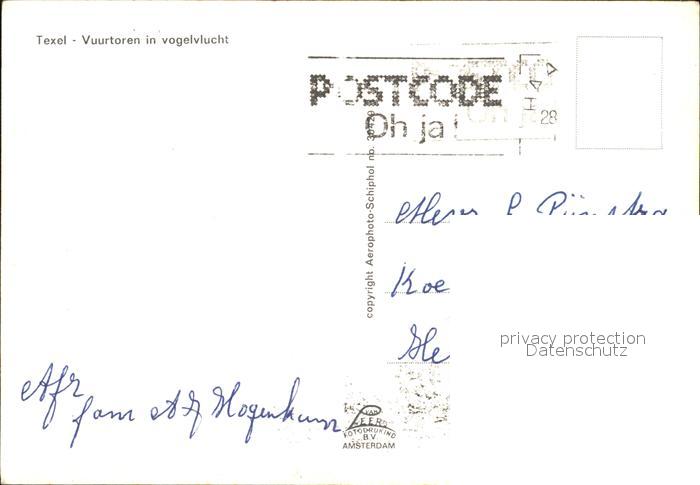 Texel - Vuurtoren in vogelvlucht
POSTCODE
Oh ja!
28
copyright Aerophoto-Schiphol no.
Koe
He
privacy protection
Datenschutz
Afz
fam
VAN
LEER
FOTODRUKIND
B.V.
AMSTERDAM